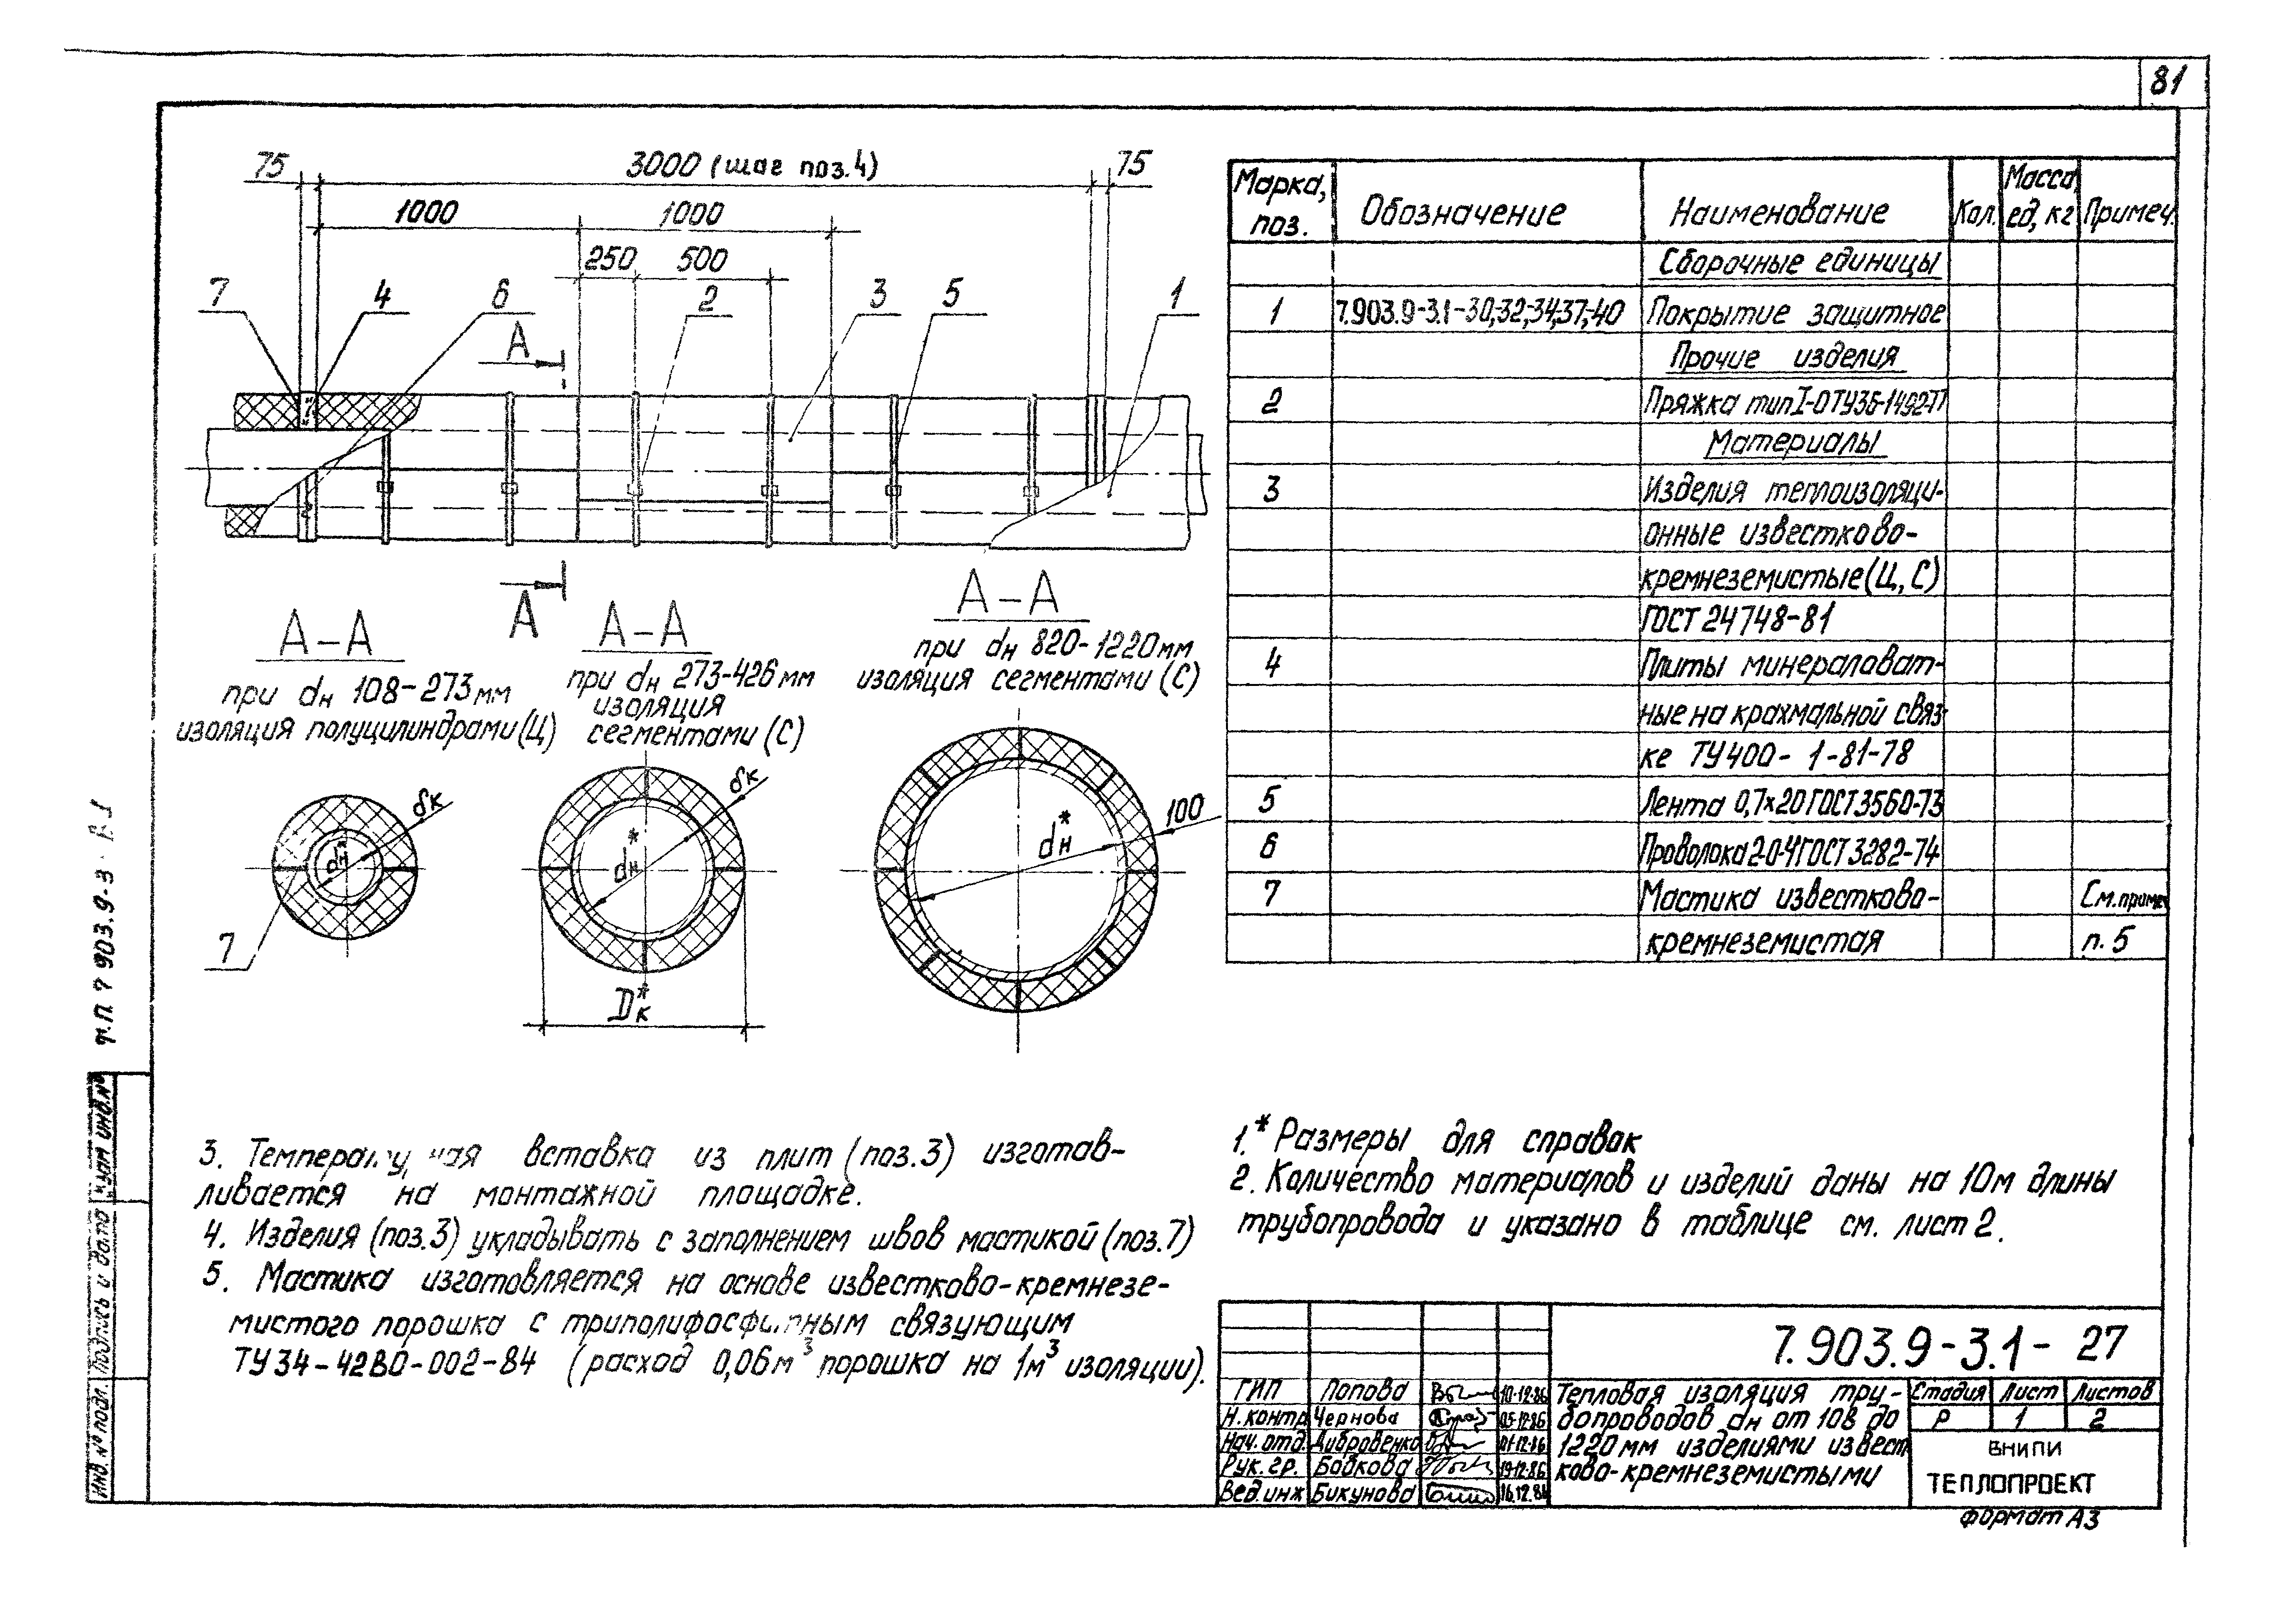 81
75
3000 (шаг поз.4)
75
1000
1000
250
500
7
4
6
2
3
5
1
А
А
А-А
при dн 108-273мм
изоляция полуцилиндрами(Ц)
А-А
при dн 273-426мм
изоляция
сегментами (С)
А-А
при dн 820-1220мм
изоляция сегментами (С)
δк
dн*
7
δк
dн*
Dк*
100
dн*
Марка, поз.
Обозначение
Наименование
Кол.
Масса ед, кг
Примеч.
Сборочные единицы
1 7.903.9-3.1-30,-32,-34,37,-40 Покрытие защитное
Прочие изделия
2 Пряжка тип I-0 ТУ36-1492-77
Материалы
3 Изделия теплоизоляци-
онные известково-
кремнеземистые(Ц,С)
ГОСТ 24748-81
4 Плиты минераловат-
ные на крахмальной связ-
ке ТУ400-1-81-78
5 Лента 0,7×20 ГОСТ3560-73
6 Проволока 2-0-Ч ГОСТ3282-74
7 Мастика известково- См.примеч
кремнеземистая п.5
3. Температурная вставка из плит (поз.3) изготав-
ливается на монтажной площадке.
4. Изделия (поз.3) укладывать с заполнением швов мастикой (поз.7)
5. Мастика изготовляется на основе известково-кремнезе-
мистого порошка с триполифосфатным связующим
ТУ34-42ВО-002-84 (расход 0,06м³ порошка на 1м³ изоляции).
1.* Размеры для справок
2. Количество материалов и изделий даны на 10м длины
трубопровода и указано в таблице см. лист 2.
т.п 7 903.9-3 В.1
Взам инв.№
Подпись и дата
Инв № подл.
7.903.9-3.1-27
ГИП Попова 10.12.86
Н.контр Чернова 05.12.86
Нач.отд. Дибровенко 01.12.86
Рук.гр. Бобкова 19.12.86
Вед.инж Бикунова 16.12.86
Тепловая изоляция тру-
бопроводов dн от 108 до
1220мм изделиями извест
ково-кремнеземистыми
Стадия Лист Листов
Р 1 2
ВНИПИ
ТЕПЛОПРОЕКТ
Формат А3